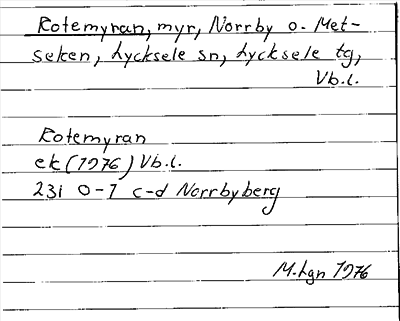 Rotemyran, myr, Norrby o. Met-
seken, Lycksele sn, Lycksele tg,
Vb.l.
Rotemyran
ek (1976) Vb.l.
23i 0-1 c-d Norrbyberg
M.Lgn 1976